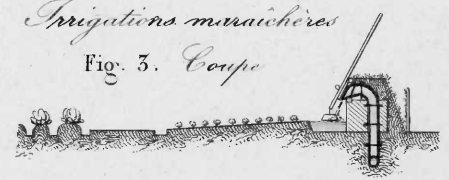 Irrigations maraîchères
Fig. 3. Coupe